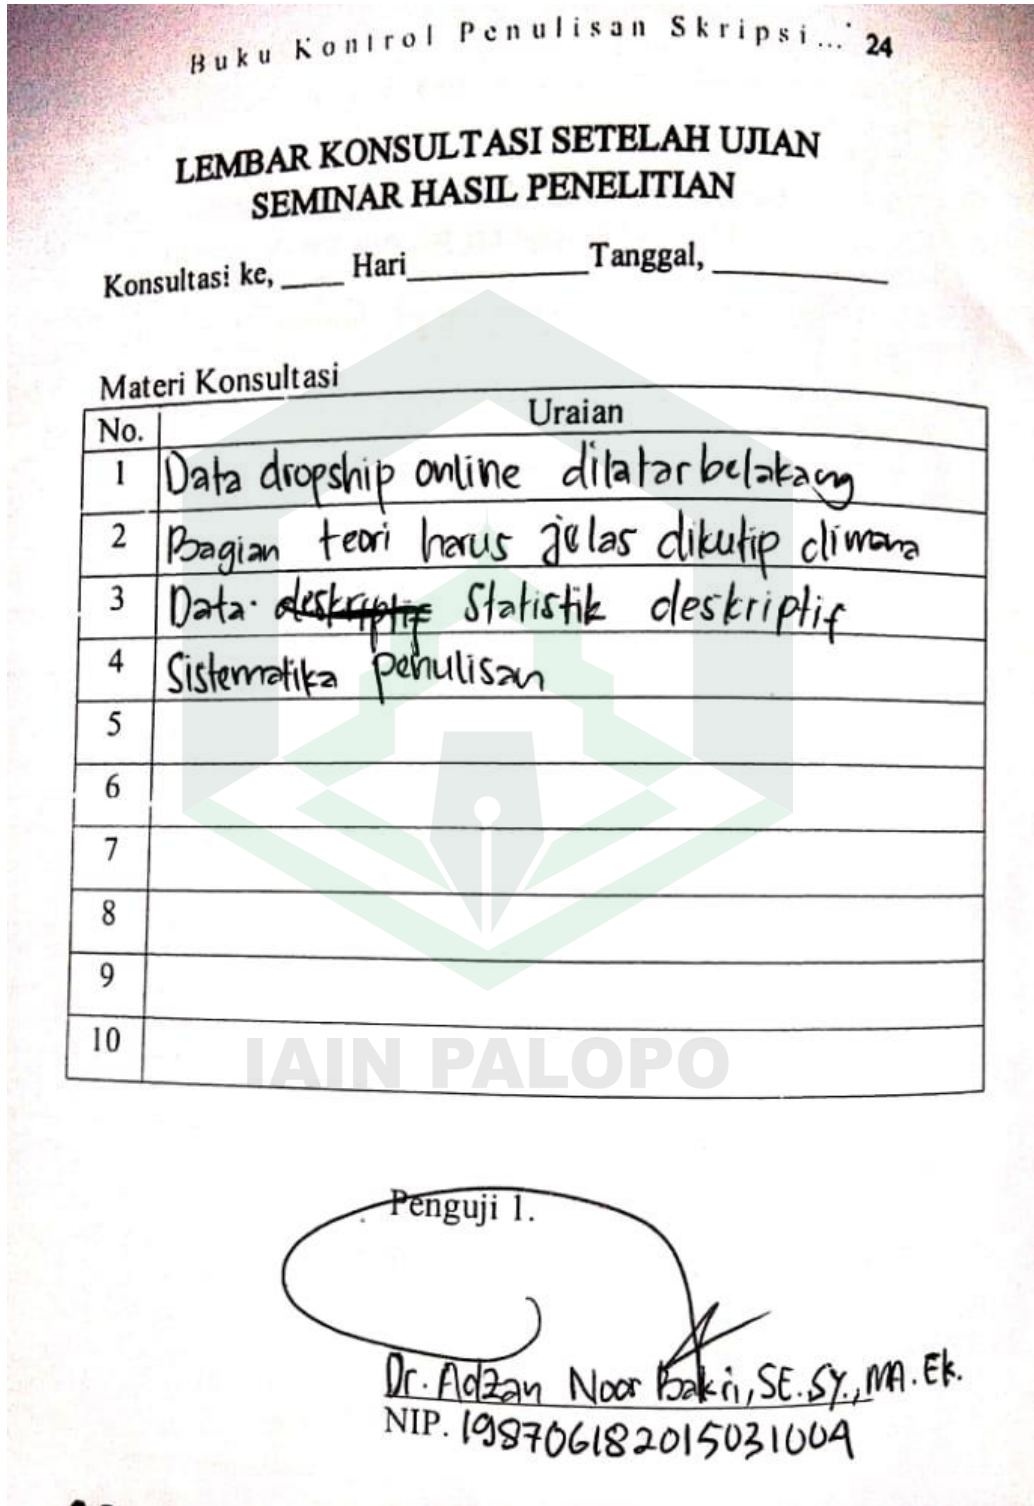 Buku Kontrol Penulisan Skripsi... 24
LEMBAR KONSULTASI SETELAH UJIAN
SEMINAR HASIL PENELITIAN
Konsultasi ke, ____ Hari____________Tanggal, ____________
Materi Konsultasi
No. Uraian
1 Data dropship online dilatarbelakang
2 Bagian teori harus jelas dikutip dimana
3 Data deskriptif Statistik deskriptif
4 Sistematika penulisan
5
6
7
8
9
10
IAIN PALOPO
Penguji 1.
Dr. Adzan Noor Bakri, SE.Sy., MA.Ek.
NIP. 198706182015031004